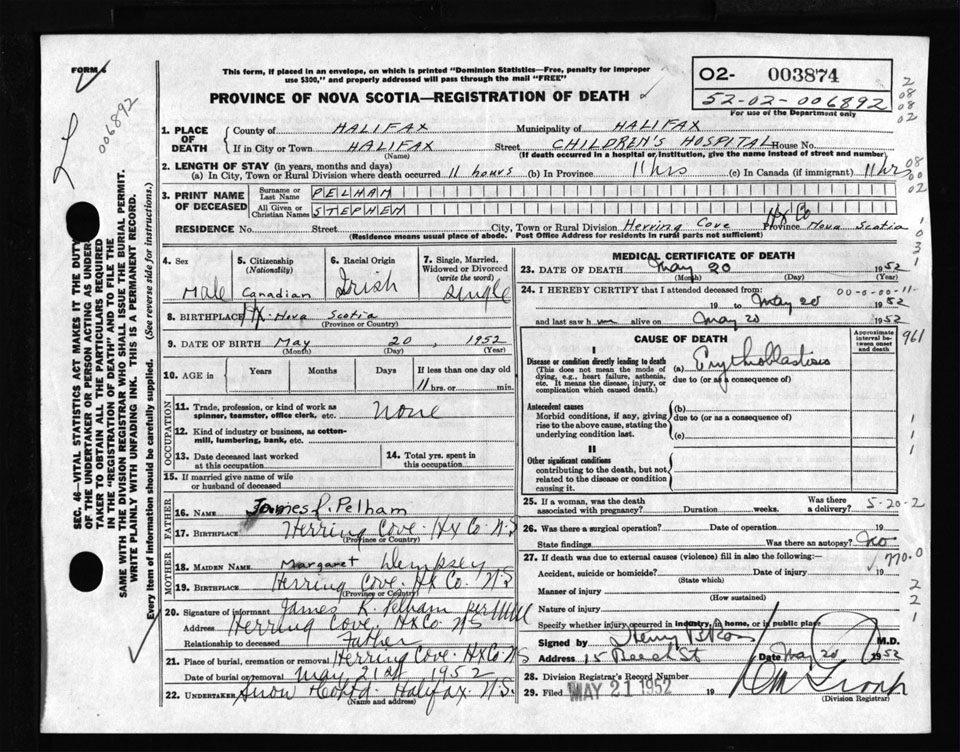 FORM 6
This form, if placed in an envelope, on which is printed "Dominion Statistics—Free, penalty for improper
use $300," and properly addressed will pass through the mail "FREE"
PROVINCE OF NOVA SCOTIA—REGISTRATION OF DEATH
02- 003874
52-02-006892
For use of the Department only
006892
2
08
08
02
1. PLACE OF DEATH
County of HALIFAX Municipality of HALIFAX
If in City or Town HALIFAX Street CHILDREN'S HOSPITAL House No.
(Name) (If death occurred in a hospital or institution, give the name instead of street and number)
2. LENGTH OF STAY (in years, months and days)
(a) In City, Town or Rural Division where death occurred 11 hours (b) In Province 11 hrs (c) In Canada (if immigrant) 11 hrs
08
00
02
3. PRINT NAME OF DECEASED
Surname or Last Name PELHAM
All Given or Christian Names STEPHEN
RESIDENCE No. Street City, Town or Rural Division Herring Cove Hx Co Province Nova Scotia
(Residence means usual place of abode. Post Office Address for residents in rural parts not sufficient)
4. Sex Male
5. Citizenship (Nationality) Canadian
6. Racial Origin Irish
7. Single, Married, Widowed or Divorced (write the word) Single
8. BIRTHPLACE Hx. Nova Scotia
(Province or Country)
9. DATE OF BIRTH May 20, 1952
(Month) (Day) (Year)
10. AGE in Years Months Days If less than one day old
11 hrs. or min.
OCCUPATION
11. Trade, profession, or kind of work as spinner, teamster, office clerk, etc. None
12. Kind of industry or business, as cotton-mill, lumbering, bank, etc.
13. Date deceased last worked at this occupation
14. Total yrs. spent in this occupation
15. If married give name of wife or husband of deceased
FATHER
16. Name James R. Pelham
17. Birthplace Herring Cove. Hx Co N.S
(Province or Country)
MOTHER
18. MAIDEN NAME Margaret Dempsey
19. Birthplace Herring Cove. Hx Co. N.S
(Province or Country)
20. Signature of informant James R. Pelham per
Address Herring Cove, Hx Co. N S
Relationship to deceased Father
21. Place of burial, cremation or removal Herring Cove. Hx Co N S
Date of burial or removal May 21st, 1952
22. UNDERTAKER Snow Co Ltd. Halifax. N.S.
(Name and address)
MEDICAL CERTIFICATE OF DEATH
23. DATE OF DEATH May 20 1952
(Month) (Day) (Year)
24. I HEREBY CERTIFY that I attended deceased from: 00-0-00-11-
19 to May 20 1952
and last saw him alive on May 20 1952
CAUSE OF DEATH
Approximate interval between onset and death
961
I
Disease or condition directly leading to death
(This does not mean the mode of dying, e.g., heart failure, asthenia, etc. It means the disease, injury, or complication which caused death.)
(a) Erythroblastosis
due to (or as a consequence of)
Antecedent causes
Morbid conditions, if any, giving rise to the above cause, stating the underlying condition last.
(b)
due to (or as a consequence of)
(c)
II
Other significant conditions
contributing to the death, but not related to the disease or condition causing it.
25. If a woman, was the death associated with pregnancy? Duration weeks. Was there a delivery?
5-20-2
26. Was there a surgical operation? Date of operation 19
State findings Was there an autopsy? no
27. If death was due to external causes (violence) fill in also the following:—
770.0
Accident, suicide or homicide? Date of injury 19
(State which)
Manner of injury
(How sustained)
Nature of injury
Specify whether injury occurred in industry, in home, or in public place
Signed by Henry B Ross M.D.
Address 15 Beech St Date May 20 1952
28. Division Registrar's Record Number
29. Filed MAY 21 1952 19
(Division Registrar)
SEC. 46—VITAL STATISTICS ACT MAKES IT THE DUTY
OF THE UNDERTAKER OR PERSON ACTING AS UNDER-
TAKER TO OBTAIN ALL THE PARTICULARS REQUIRED
IN THE "REGISTRATION OF DEATH" AND TO FILE THE
SAME WITH THE DIVISION REGISTRAR WHO SHALL ISSUE THE BURIAL PERMIT.
WRITE PLAINLY WITH UNFADING INK. THIS IS A PERMANENT RECORD.
Every item of information should be carefully supplied. (See reverse side for instructions.)